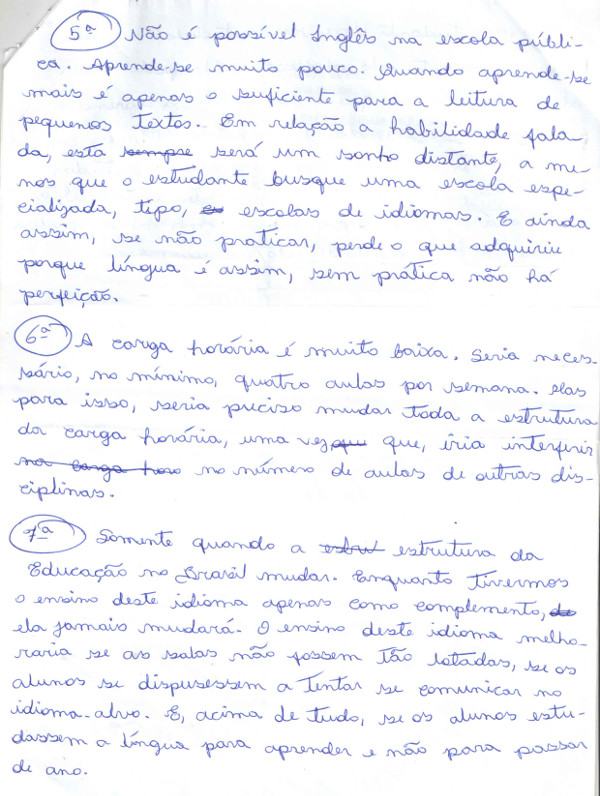 5ª Não é possível Inglês na escola públi-
ca. Aprende-se muito pouco. Quando aprende-se
mais é apenas o suficiente para a leitura de
pequenos textos. Em relação a habilidade fala-
da, esta sempre será um sonho distante, a me-
nos que o estudante busque uma escola espe-
cializada, tipo, escolas de idiomas. E ainda
assim, se não praticar, perde o que adquiriu
porque língua é assim, sem prática não há
perfeição.
6ª A carga horária é muito baixa. Seria neces-
sário, no mínimo, quatro aulas por semana. Mas
para isso, seria preciso mudar toda a estrutura
da carga horária, uma vez que que, iria interferir
na carga hora no número de aulas de outras dis-
ciplinas.
7ª Somente quando a estrut estrutura da
Educação no Brasil mudar. Enquanto tivermos
o ensino deste idioma apenas como complemento, de
ela jamais mudará. O ensino deste idioma melho-
raria se as salas não fossem tão lotadas, se os
alunos se dispusessem a tentar se comunicar no
idioma-alvo. E, acima de tudo, se os alunos estu-
dassem a língua para aprender e não para passar
de ano.